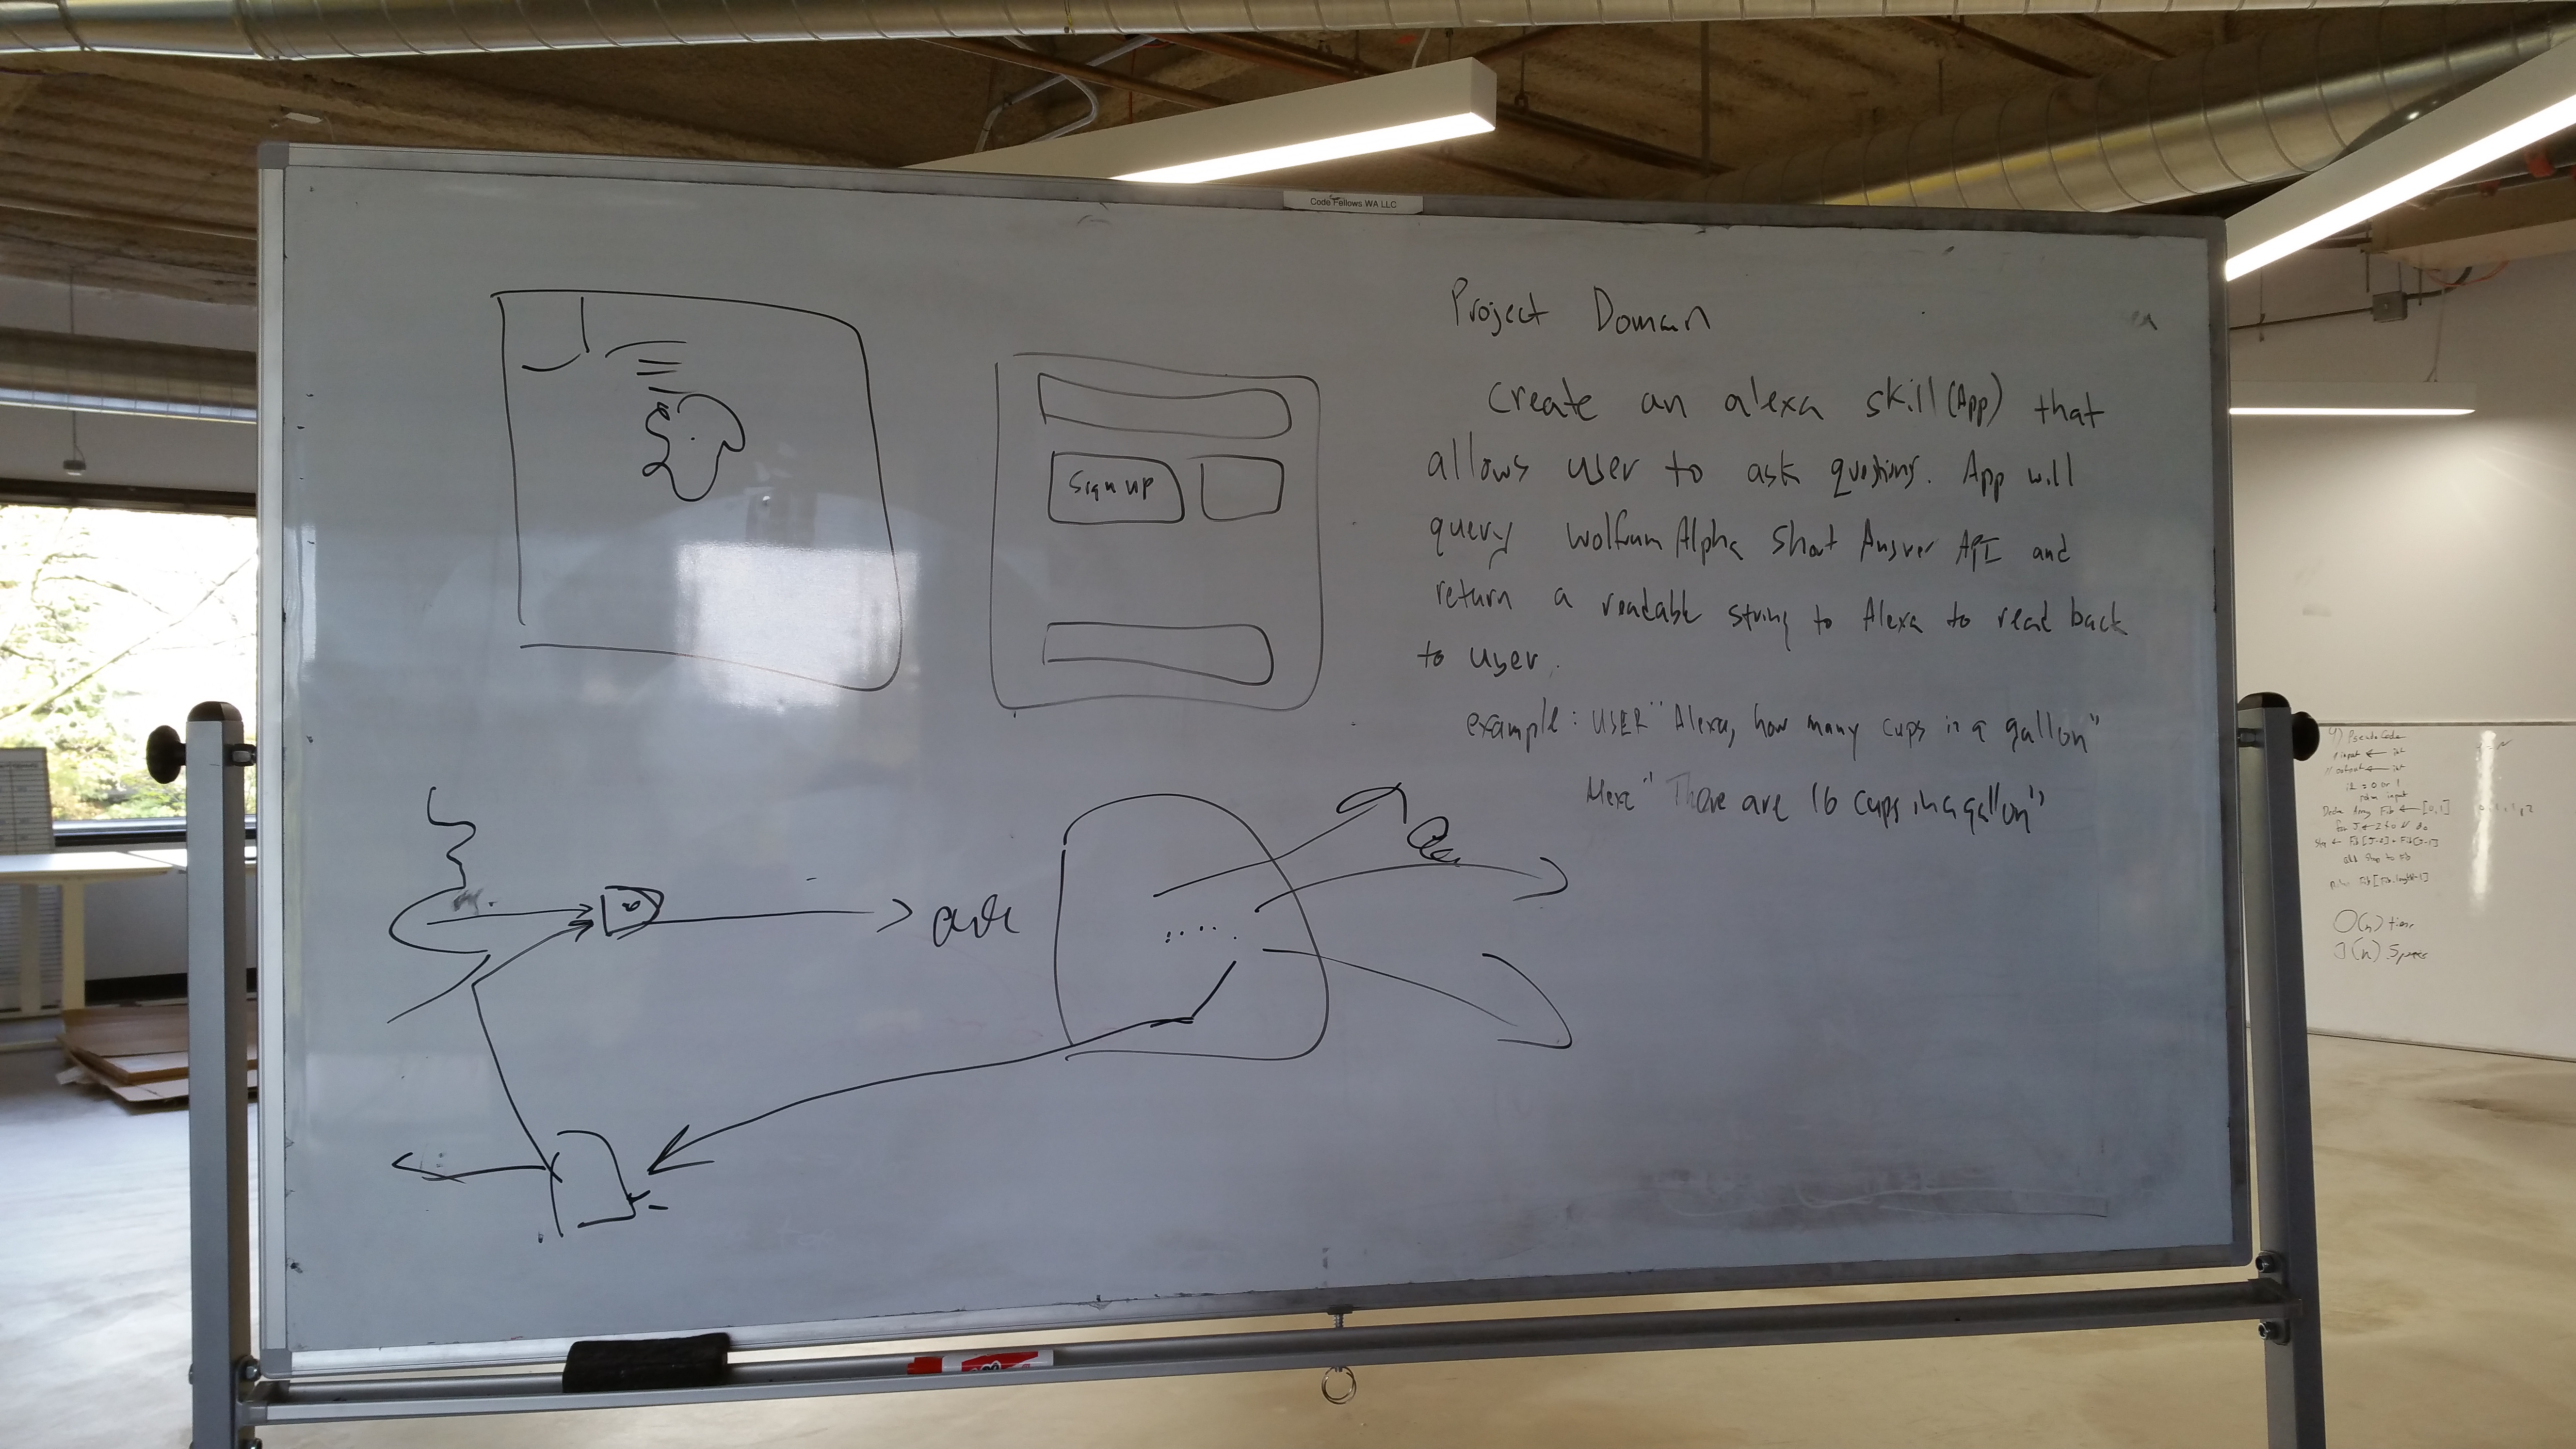 Code Fellows WA LLC
Project Domain
Create an alexa skill (App) that
allows user to ask questions. App will
query Wolfram Alpha Short Answer API and
return a readable string to Alexa to read back
to user.
example: USER "Alexa, how many cups in a gallon"
Alexa "There are 16 cups in a gallon"
Sign up
4) PseudoCode
// input ← int
// output ← int
return input
O(n) time
O(n) Space